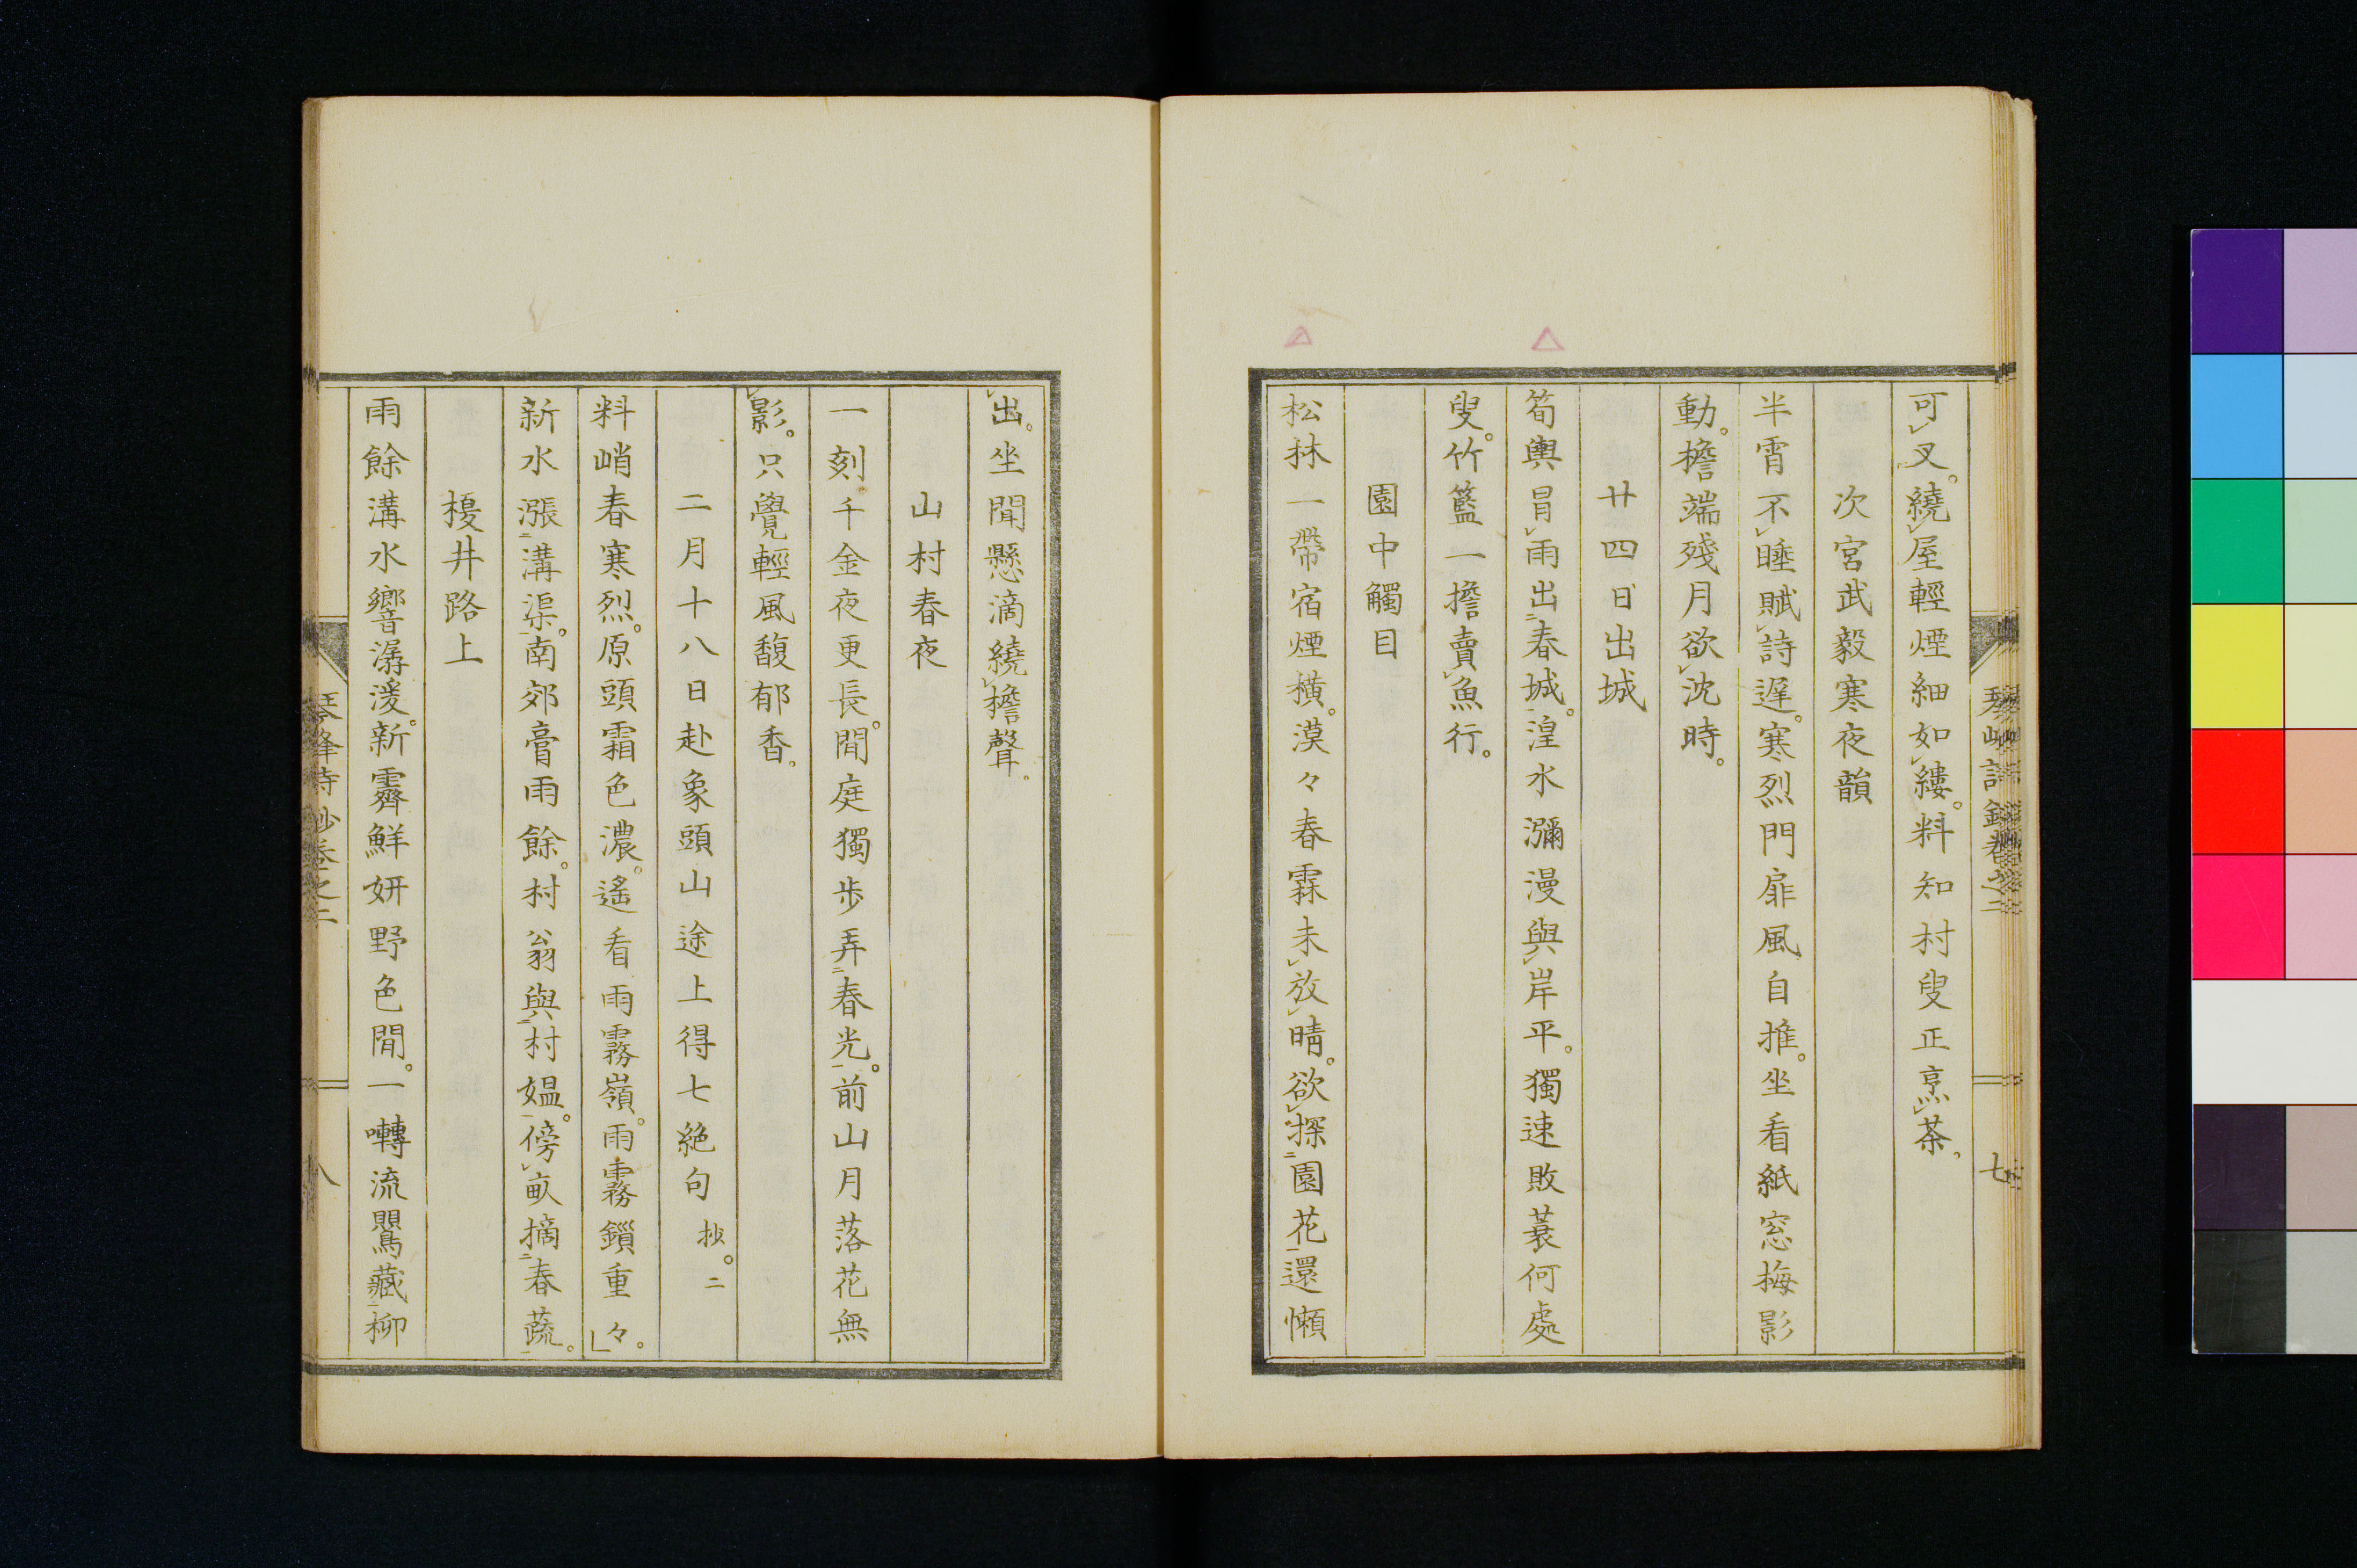 可叉。繞屋輕煙細如縷。料知村叟正烹茶。
次宮武毅寒夜韻
半宵不睡賦詩遲。寒烈門扉風自推。坐看紙窓梅影
動。檐端殘月欲沈時。
廿四日出城
筍輿冒雨出春城。湟水瀰漫與岸平。獨速敗蓑何處
叟。竹籃一擔賣魚行。
園中觸目
松林一帶宿煙橫。漠々春霖未放晴。欲探園花還懶
七
出。坐聞懸滴繞檐聲。
山村春夜
一刻千金夜更長。閒庭獨步弄春光。前山月落花無
影。只覺輕風馥郁香。
二月十八日赴象頭山途上得七絶句 抄。二
料峭春寒烈。原頭霜色濃。遙看雨霧嶺。雨霧鎻重々。
新水漲溝渠。南郊膏雨餘。村翁與村媼。傍畝摘春蔬。
榎井路上
雨餘溝水響潺湲。新霽鮮妍野色閒。一囀流鸎藏柳
琴峰詩鈔卷之二
八